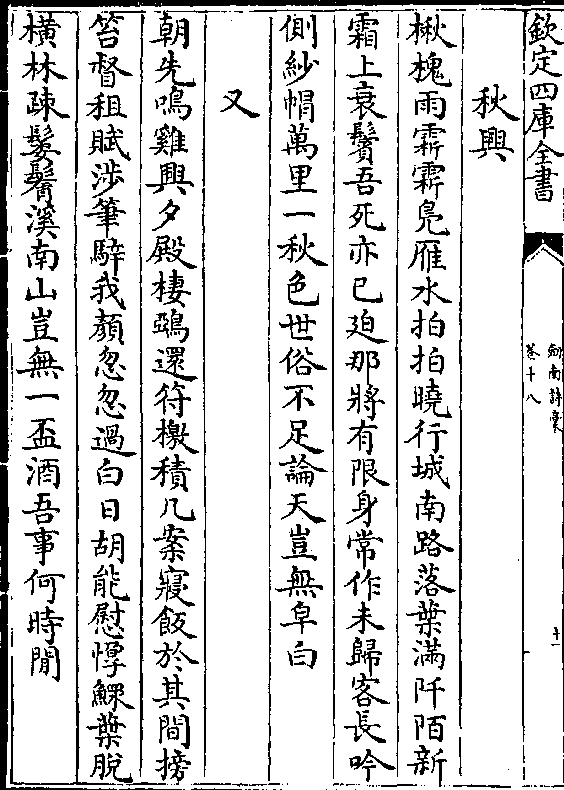 欽定四庫全書
劍南詩稾
卷十八
十一
秋興
楸槐雨霏霏鳬雁水拍拍曉行城南路落葉滿阡陌新
霜上衰鬢吾死亦已迫那將有限身常作未歸客長吟
側紗帽萬里一秋色世俗不足論天豈無皁白
又
朝先鳴雞興夕殿棲鵶還符檄積几案寢飯於其間搒
笞督租賦涉筆騂我顔忽忽過白日胡能慰惸鰥葉脫
橫林疎髮鬅溪南山豈無一盃酒吾事何時閒